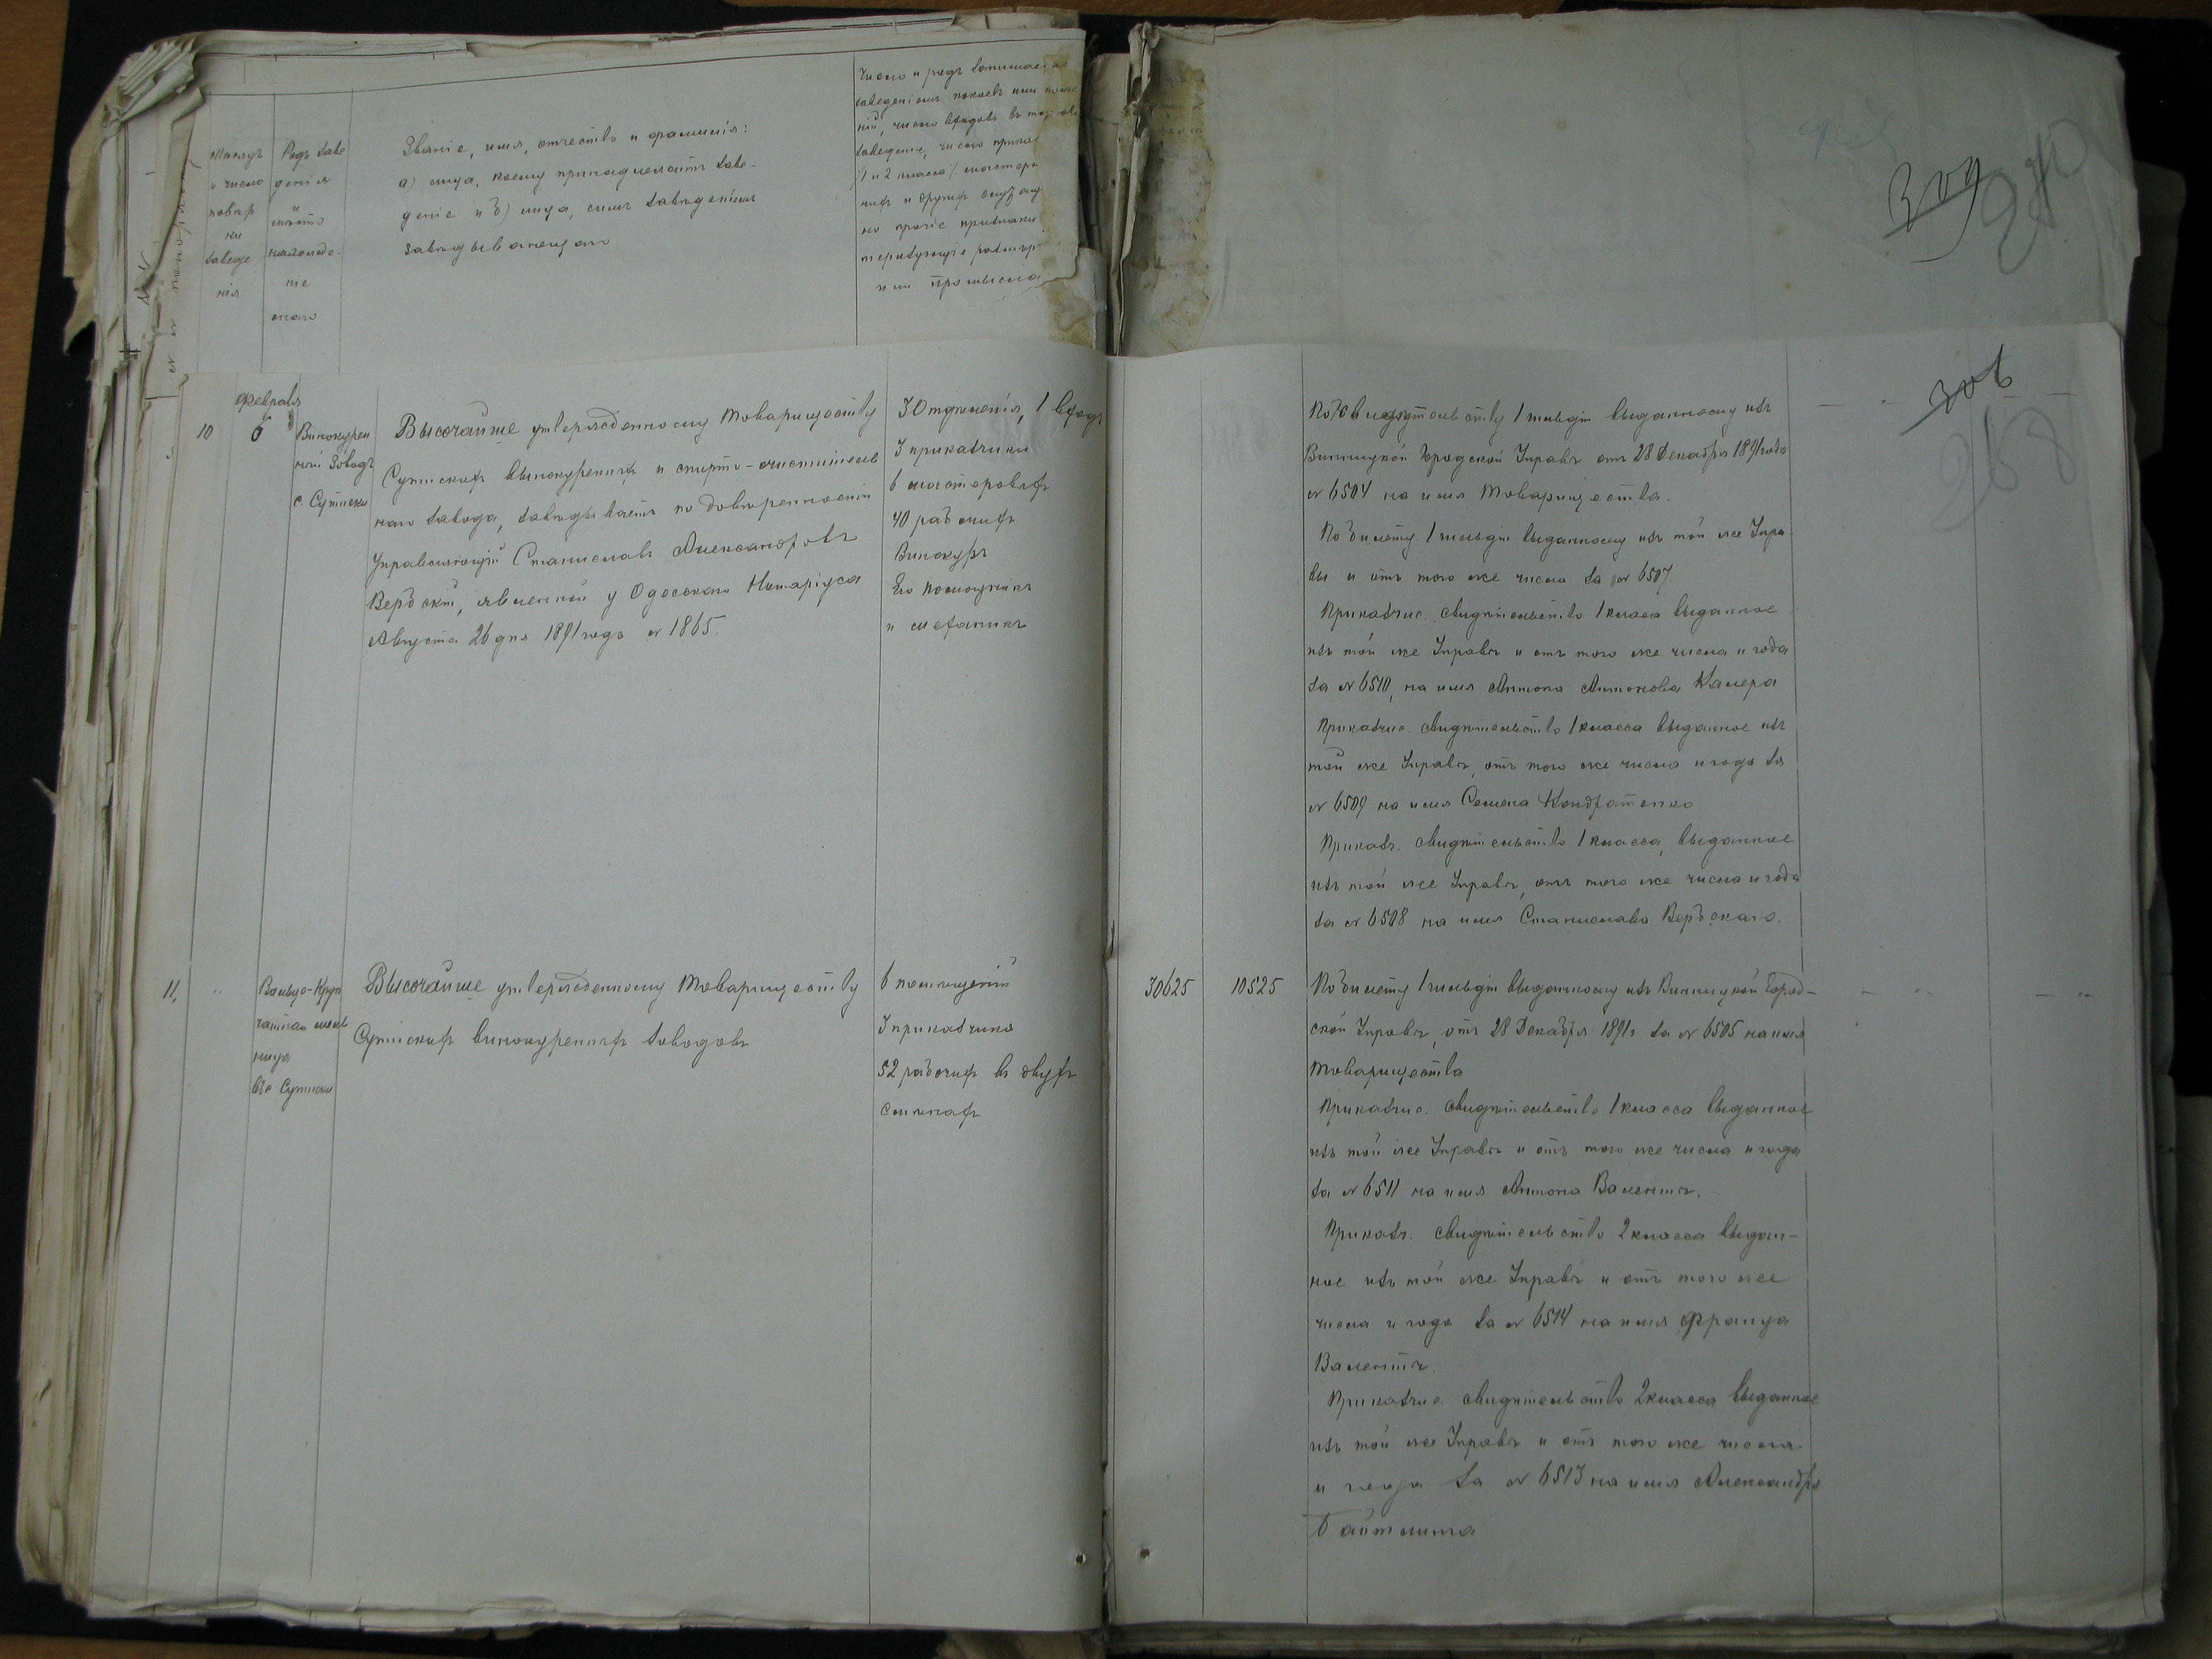 Мѣсяцъ
и число
повѣр
ки
заведе
нія
Родъ заве
денія
и
мѣсто
нахожде-
ніе
онаго
Званіе, имя, отчество и фамилія:
а) лица, коему принадлежитъ заве-
деніе и б) лица, симъ заведеніемъ
завѣдывающаго
Число и родъ занимаем
заведеніемъ покоевъ или помѣще
ній, число входовъ въ то
заведеніе, число прика
(1 и 2 класса) мастеро
чихъ и другихъ служащ
но прочіе признаки
теризующіе размѣръ
или промысла
309
10
Февраля
6
Винокурен
ный Заводъ
с. Сутиски
Высочайше утвержденному Товариществу
Сутискихъ винокуренныхъ и спирто-очиститель
наго завода, завѣдываетъ по довѣренности
Управляющій Станиславъ Александровъ
Вербскій, явленной у Одесскаго Нотаріуса
Августа 26 дня 1891 года № 1865.
3 Отдѣленія, 1 входъ
3 прикащики
6 мастеровыхъ
40 рабочихъ
Винокуръ
Его помощникъ
и механикъ
По свидѣтельству 1 гильдіи выданному изъ
Винницкой Городской Управы отъ 28 Декабря 1891 года
№ 6504 на имя Товарищества.
По билету 1 гильдіи выданному изъ той же Упра-
вы и отъ того же числа за № 6507
Приказчис. свидѣтельство 1 класа выданное
изъ той же Управы и отъ того же числа и года
за № 6510, на имя Антона Антонова Камера
Приказчис. свидѣтельство 1 класса выданное изъ
той же Управы, отъ того же числа и года за
№ 6509 на имя Семена Кондратенко
Приказч. свидѣтельство 1 класса, выданное
изъ той же Управы, отъ того же числа и года
за № 6508 на имя Станислава Вербскаго.
306
268
11,
Вальцо-Круп
чатная мель
ница
въ с Сутиски
Высочайше утвержденному Товариществу
Сутискихъ винокуренныхъ заводовъ
6 помѣщеній
3 прикащика
52 рабочихъ въ двухъ
смѣнахъ
30625
10525
По билету 1 гильдіи выданному изъ Винницкой Город-
ской Управы, отъ 28 Декабря 1891 г за № 6505 на имя
Товарищества
Приказчис. свидѣтельство 1 класса выданное
изъ той же Управы и отъ того же числа и года
за № 6511 на имя Антона Валентъ.
Приказч. свидѣтельство 2 класса выдан-
ное изъ той же Управы и отъ того же
числа и года за № 6514 на имя Франца
Валентъ.
Приказчис свидѣтельство 2 класса выданное
изъ той же Управы и отъ того же числа
и года за № 6513 на имя Александра